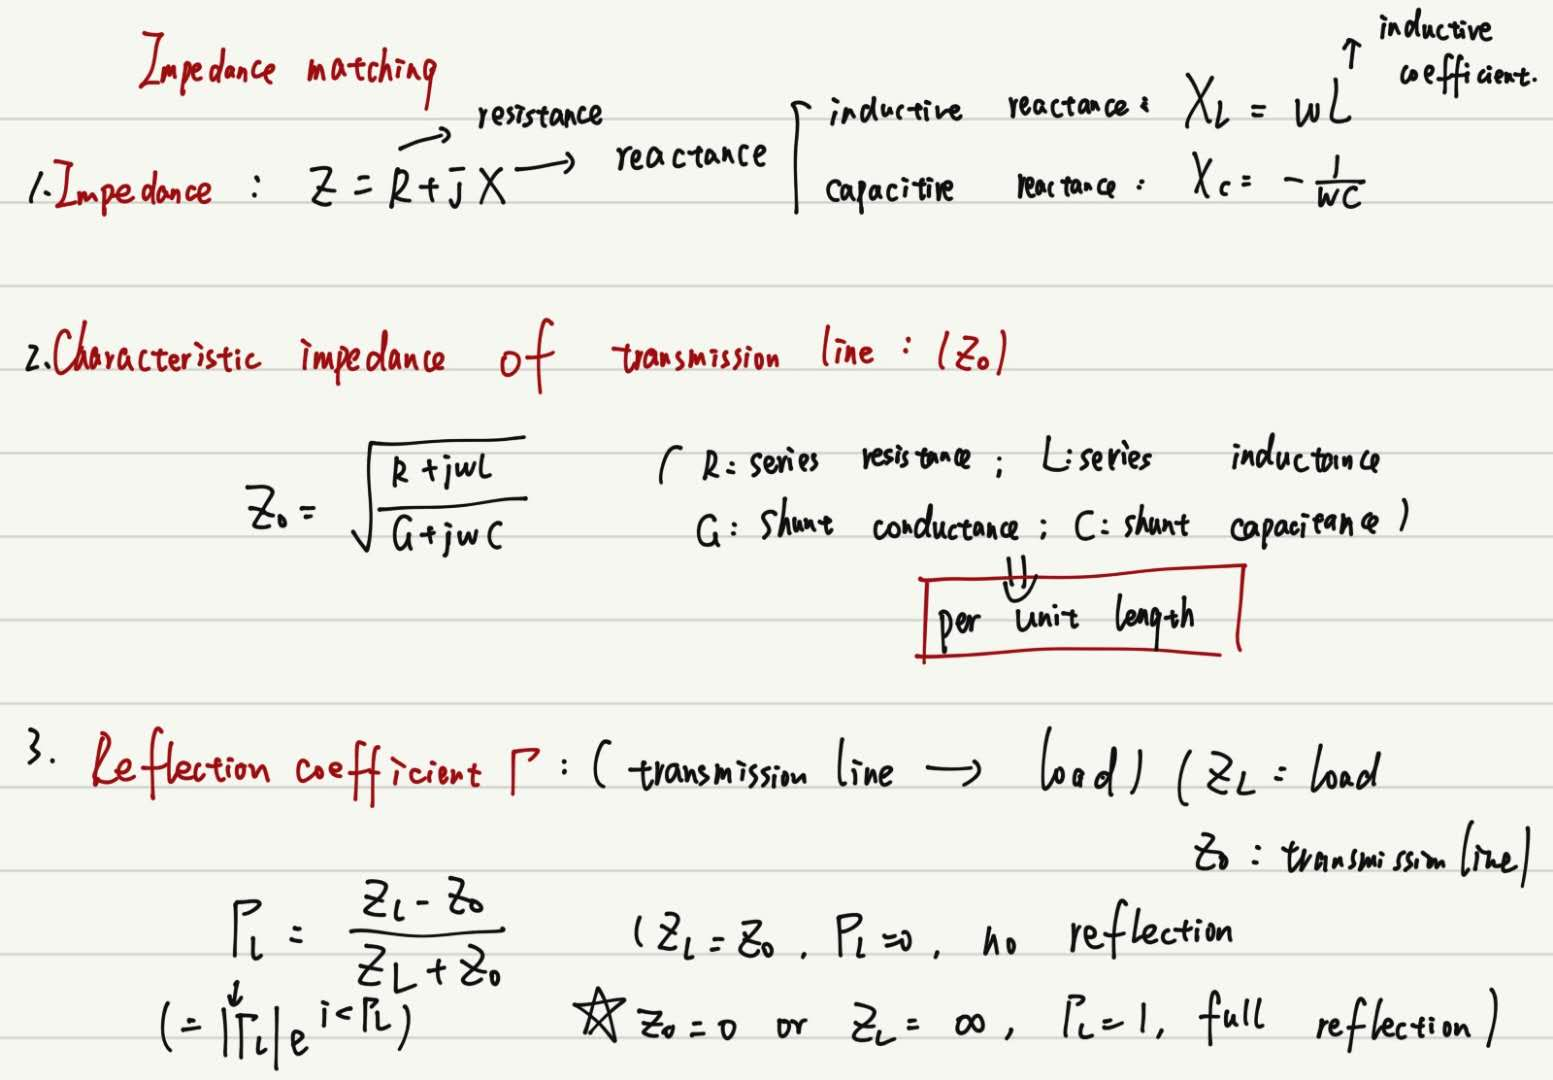 Impedance matching
inductive
coefficient.
resistance
inductive reactance: X_L = wL
1. Impedance : Z = R + jX → reactance
capacitive reactance: X_c = - 1/wC
2. Characteristic impedance of transmission line : (Z₀)
Z₀ = √((R + jwL)/(G + jwC))
( R: series resistance ; L: series inductance
G: shunt conductance ; C: shunt capacitance )
per unit length
3. Reflection coefficient Γ : ( transmission line → load ) ( Z_L = load
Z₀ : transmission line )
Γ_L = (Z_L - Z₀)/(Z_L + Z₀) ( Z_L = Z₀ , Γ_L = 0 , no reflection
(= |Γ_L| e^{i<Γ_L}) ☆ Z₀ = 0 or Z_L = ∞ , Γ_L = 1 , full reflection )